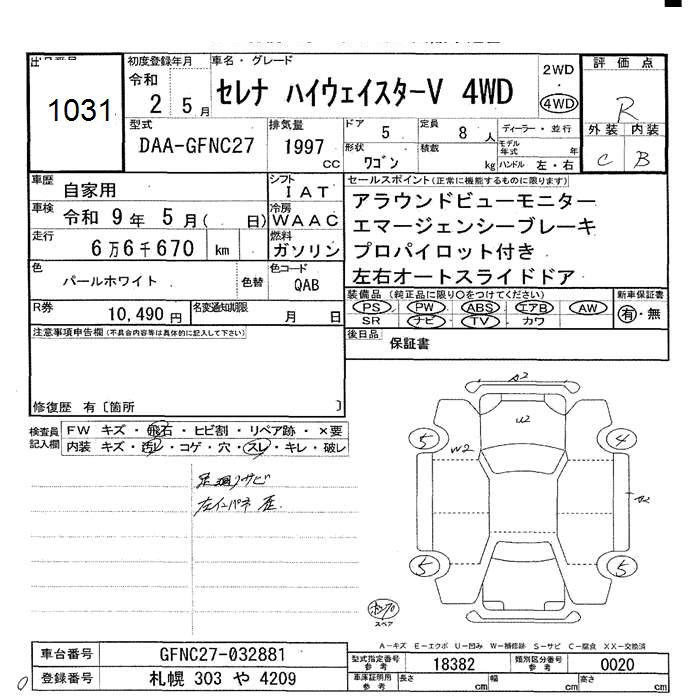 出品番号
1031
初度登録年月
令和
2 5月
車名・グレード
セレナ ハイウェイスターV 4WD
2WD
・
4WD
評価点
R
外装 内装
C B
型式
DAA-GFNC27
排気量
1997
cc
ドア 5
定員 8 人
ディーラー・並行
形状 ワゴン
積載 kg
モデル年式 年
ハンドル 左・右
車歴 自家用
シフト IAT
車検 令和 9年 5月( 日)
冷房 WAAC
走行 6万6千670 km
燃料 ガソリン
色 パールホワイト
色替
色コード QAB
R券 10,490円
名変通知期限 月 日
セールスポイント(正常に機能するものに限ります)
アラウンドビューモニター
エマージェンシーブレーキ
プロパイロット付き
左右オートスライドドア
装備品(純正品に限り○をつけてください)
PS・PW・ABS・エアB・AW
SR ナビ・TV・カワ
新車保証書
有・無
後日品 保証書
注意事項申告欄(不具合内容等は具体的に記入して下さい)
修復歴 有〔箇所 〕
検査員記入欄
FW キズ・飛石・ヒビ割・リペア跡・×要
内装 キズ・汚レ・コゲ・穴・スレ・キレ・破レ
足廻りサビ
左インパネ
A2
U2
5 4
W2
A2
5 5
スペア
A-キズ E-エクボ U-凹み W-補修跡 S-サビ C-腐食 XX-交換済
車台番号 GFNC27-032881
登録番号 札幌 303 や 4209
型式指定番号 参考 18382
類別区分番号 参考 0020
車庫証明用 参考
長さ cm
幅 cm
高さ cm
0